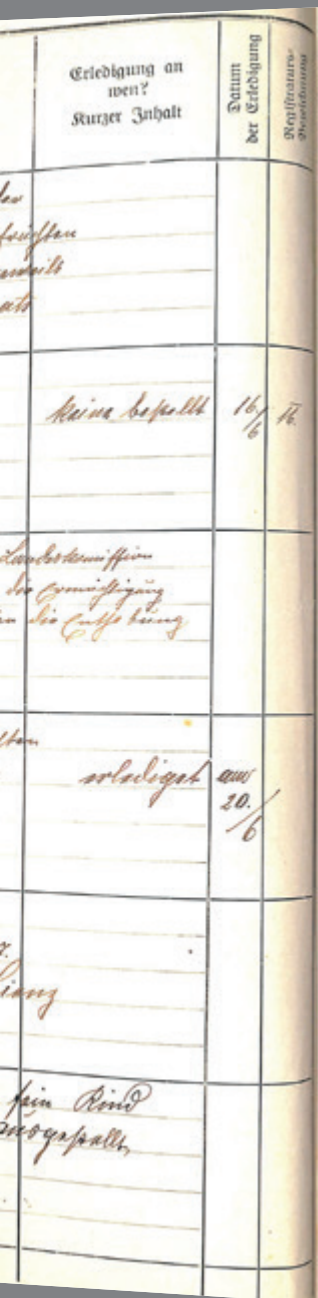 Erledigung an
wen?
Kurzer Inhalt
Datum
der Erledigung
Registraturs-
Bezeichnung
keine bestellt 16./6 16.
Landeskomission
die Ermächtigung
die Enthebung
erlediget am
20./6
sein Kind
ausgestellt